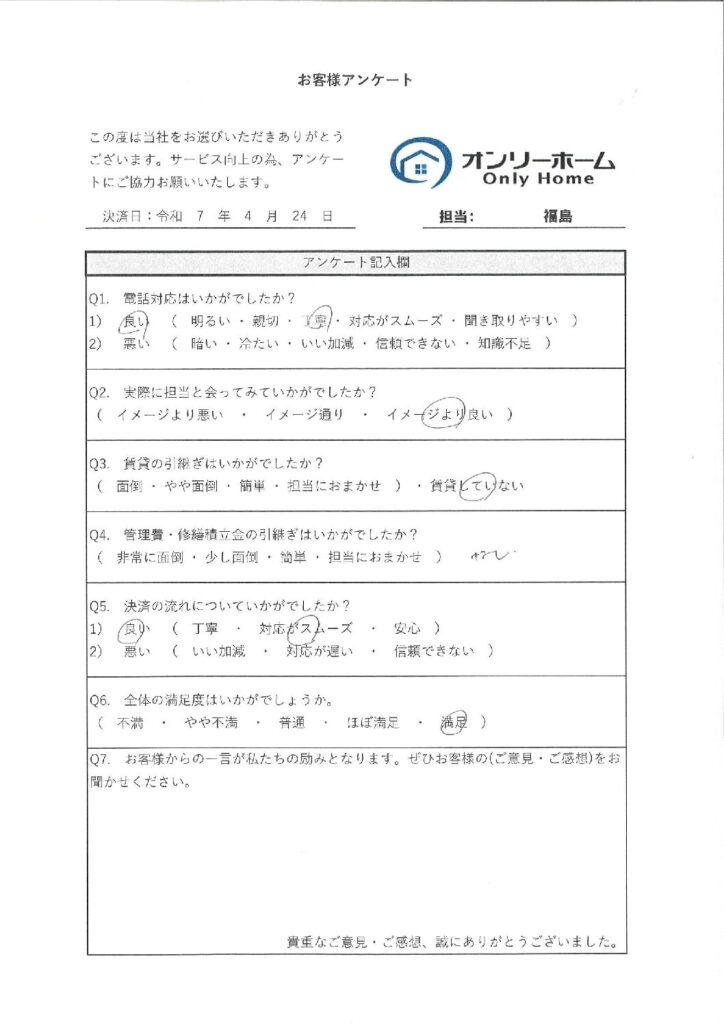 お客様アンケート
この度は当社をお選びいただきありがとう
ございます。サービス向上の為、アンケー
トにご協力お願いいたします。
オンリーホーム
Only Home
決済日：令和 7 年 4 月 24 日
担当： 福島
アンケート記入欄
Q1. 電話対応はいかがでしたか？
1) 良い （ 明るい ・ 親切 ・ 丁寧 ・ 対応がスムーズ ・ 聞き取りやすい ）
2) 悪い （ 暗い ・ 冷たい ・ いい加減 ・ 信頼できない ・ 知識不足 ）
Q2. 実際に担当と会ってみていかがでしたか？
（ イメージより悪い ・ イメージ通り ・ イメージより良い ）
Q3. 賃貸の引継ぎはいかがでしたか？
（ 面倒 ・ やや面倒 ・ 簡単 ・ 担当におまかせ ） ・ 賃貸していない
Q4. 管理費・修繕積立金の引継ぎはいかがでしたか？
（ 非常に面倒 ・ 少し面倒 ・ 簡単 ・ 担当におまかせ ）
Q5. 決済の流れについていかがでしたか？
1) 良い （ 丁寧 ・ 対応がスムーズ ・ 安心 ）
2) 悪い （ いい加減 ・ 対応が遅い ・ 信頼できない ）
Q6. 全体の満足度はいかがでしょうか。
（ 不満 ・ やや不満 ・ 普通 ・ ほぼ満足 ・ 満足 ）
Q7. お客様からの一言が私たちの励みとなります。ぜひお客様の(ご意見・ご感想)をお
聞かせください。
貴重なご意見・ご感想、誠にありがとうございました。